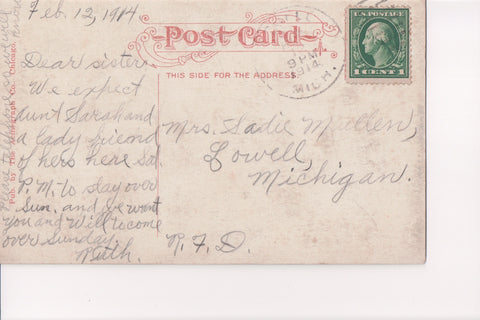 Feb. 12, 1914
Dear sister.
We expect
aunt Sarah and
a lady friend
of hers here Sat.
P.M. to stay over
Sun. and we want
you and Will to come
over Sunday.
Ruth.
Post Card
THIS SIDE FOR THE ADDRESS
9 PM
1914
MICH.
U.S. POSTAGE
1 CENT 1
Mrs. Sadie Mullen,
Lowell,
Michigan.
R. F. D.